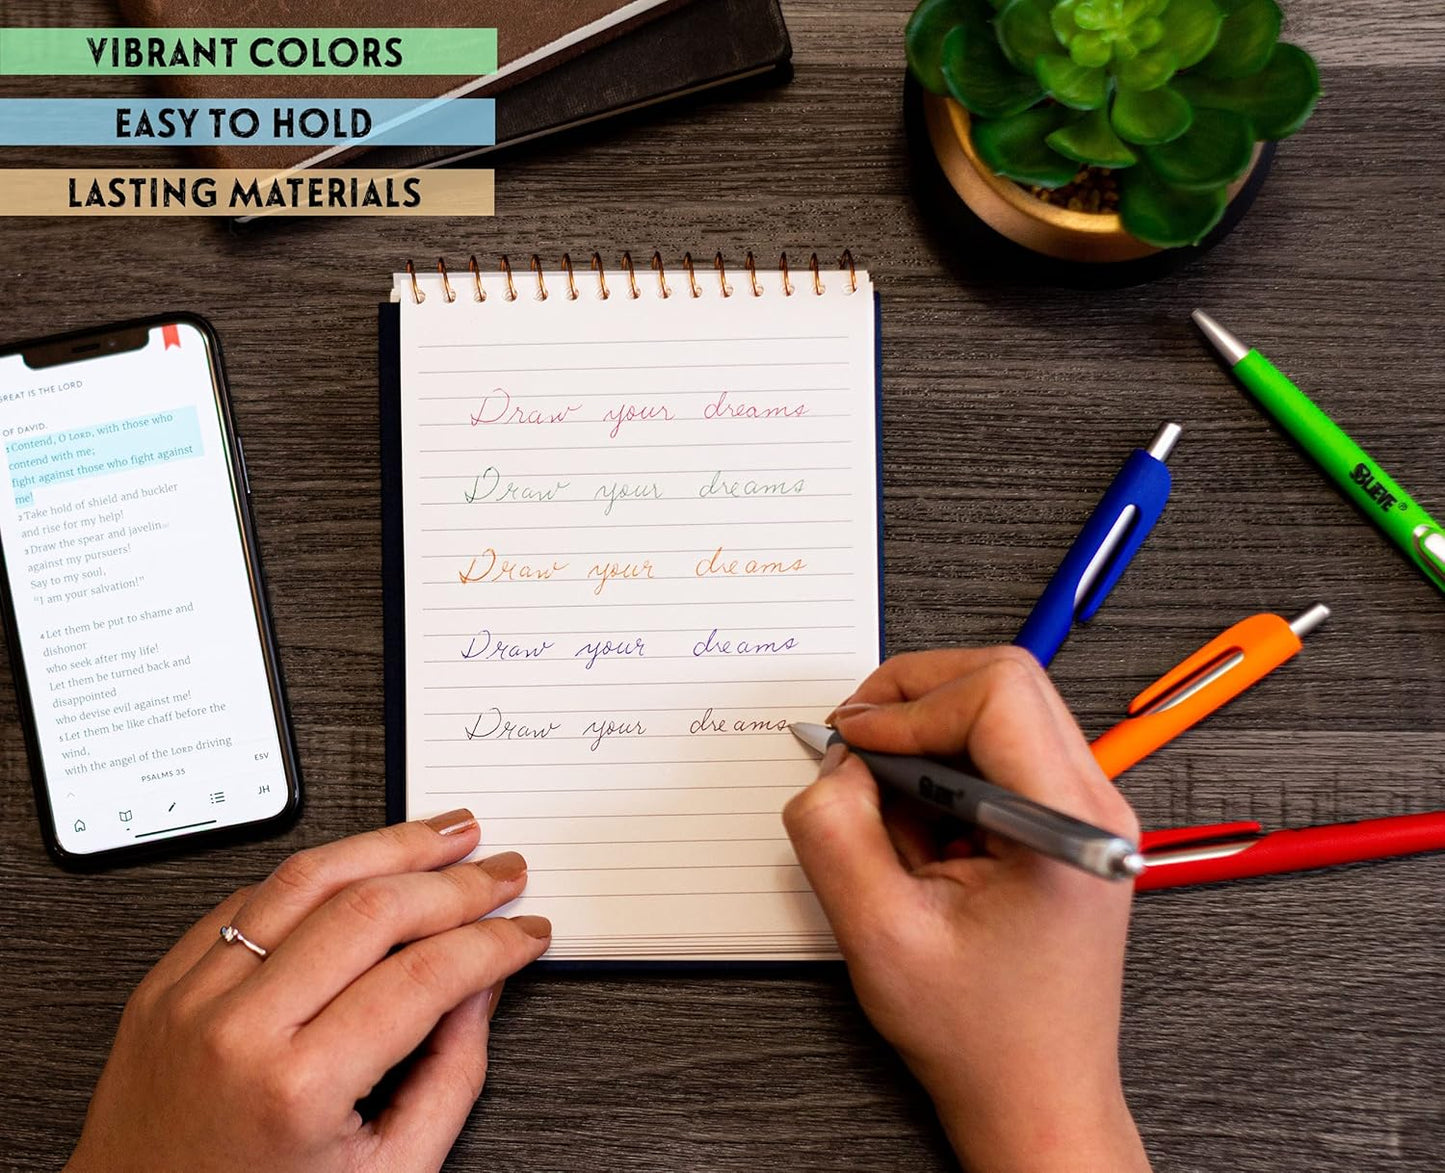 VIBRANT COLORS
EASY TO HOLD
LASTING MATERIALS
GREAT IS THE LORD
OF DAVID.
1 Contend, O LORD, with those who
contend with me;
fight against those who fight against
me!
2 Take hold of shield and buckler
and rise for my help!
3 Draw the spear and javelin
against my pursuers!
Say to my soul,
“I am your salvation!”
4 Let them be put to shame and
dishonor
who seek after my life!
Let them be turned back and
disappointed
who devise evil against me!
5 Let them be like chaff before the
wind,
with the angel of the LORD driving
PSALMS 35
ESV
JH
Draw your dreams
Draw your dreams
Draw your dreams
Draw your dreams
Draw your dreams